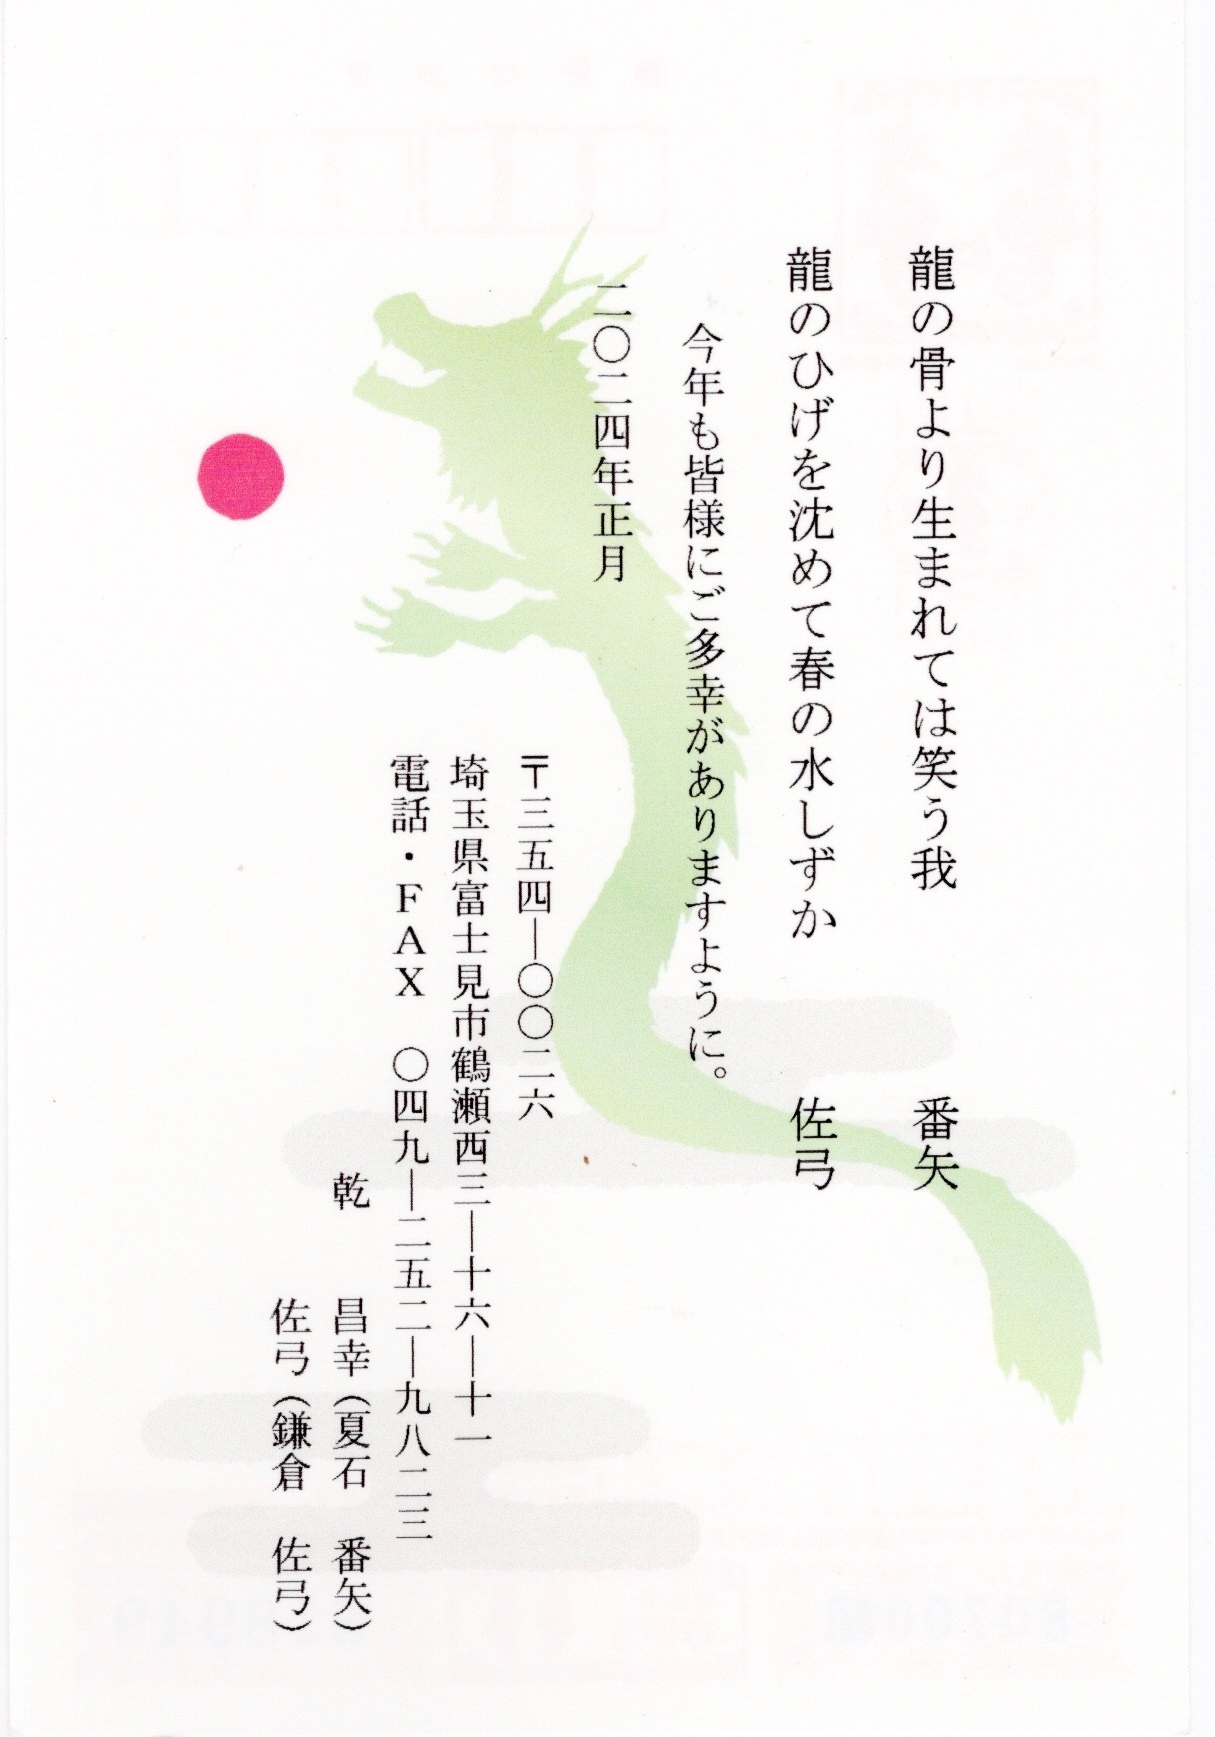 龍の骨より生まれては笑う我　　　　番矢
龍のひげを沈めて春の水しずか　　　佐弓
今年も皆様にご多幸がありますように。
二〇二四年正月
〒三五四―〇〇二六
埼玉県富士見市鶴瀬西三―十六―十一
電話・ＦＡＸ　〇四九―二五二―九八二三
乾　　昌幸（夏石　番矢）
佐弓（鎌倉　佐弓）